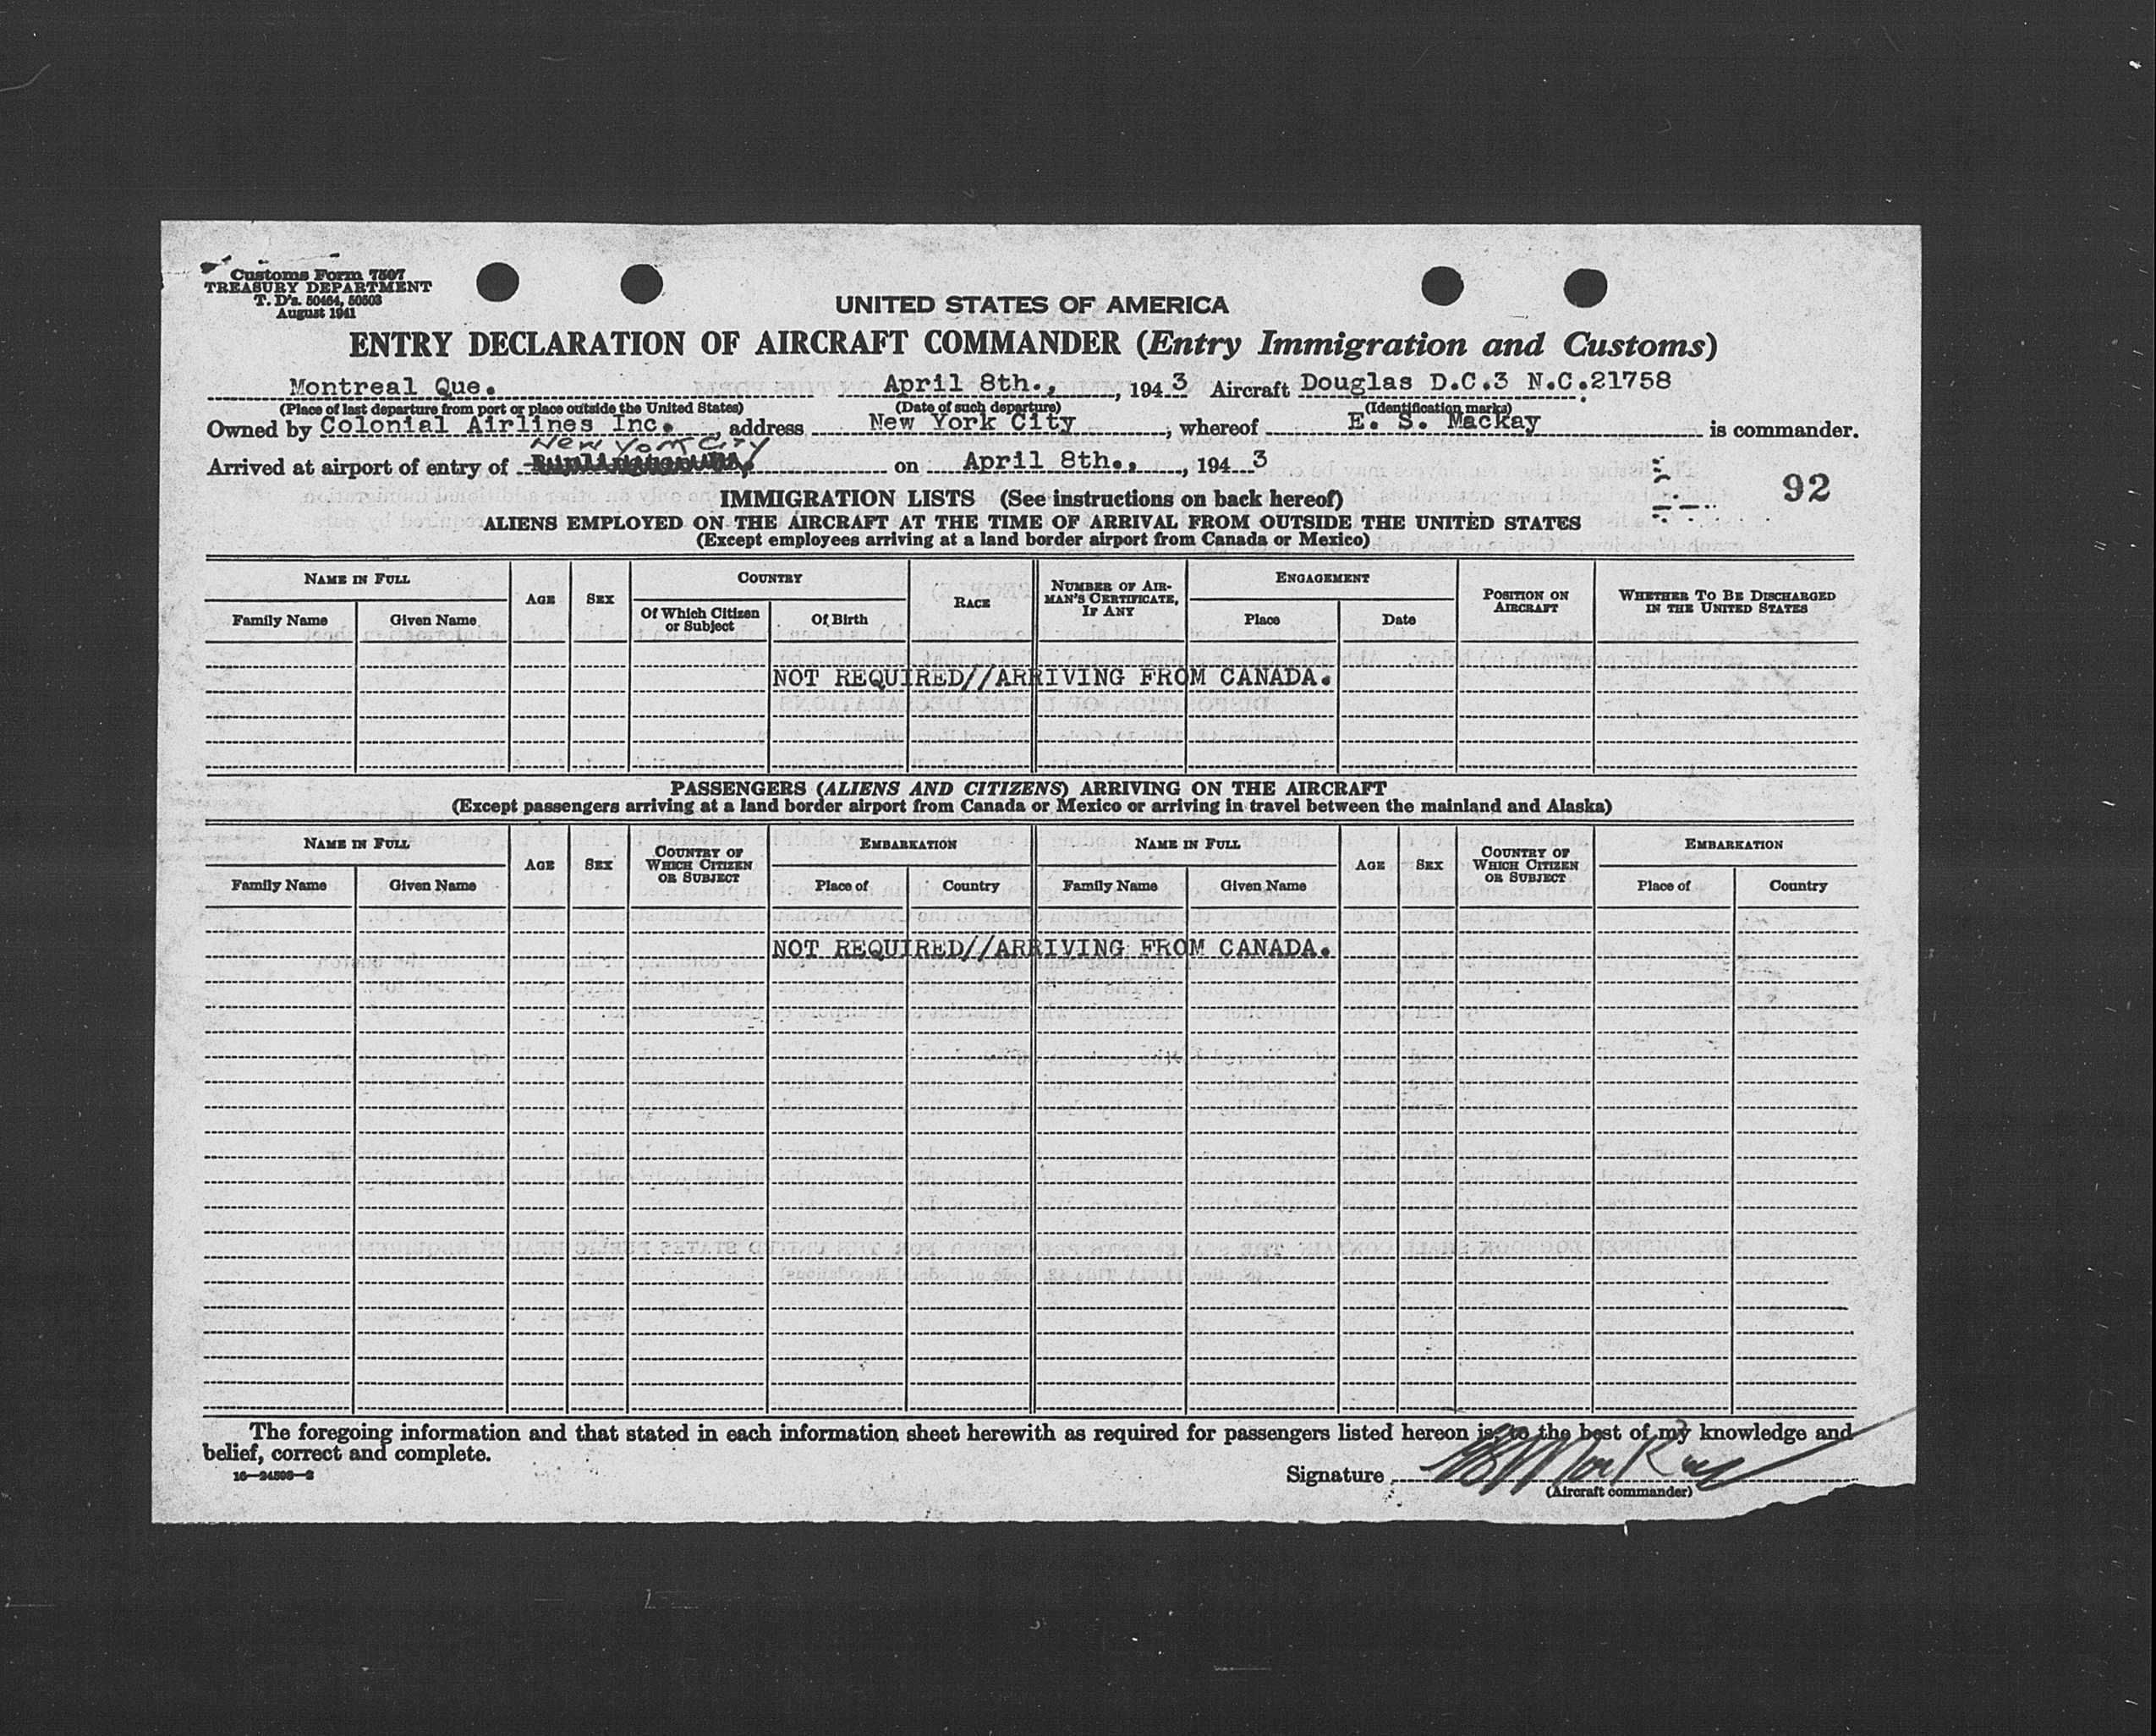 Customs Form 7507
TREASURY DEPARTMENT
T. D's. 50464, 50503
August 1941
UNITED STATES OF AMERICA
ENTRY DECLARATION OF AIRCRAFT COMMANDER (Entry Immigration and Customs)
Montreal Que. April 8th., 1943 Aircraft Douglas D.C.3 N.C.21758
(Place of last departure from port or place outside the United States) (Date of such departure) (Identification marks)
Owned by Colonial Airlines Inc., address New York City, whereof E. S. Mackay is commander.
New York City
Arrived at airport of entry of on April 8th., 1943
92
IMMIGRATION LISTS (See instructions on back hereof)
ALIENS EMPLOYED ON THE AIRCRAFT AT THE TIME OF ARRIVAL FROM OUTSIDE THE UNITED STATES
(Except employees arriving at a land border airport from Canada or Mexico)
NAME IN FULL AGE SEX COUNTRY RACE NUMBER OF AIRMAN'S CERTIFICATE, IF ANY ENGAGEMENT POSITION ON AIRCRAFT WHETHER TO BE DISCHARGED IN THE UNITED STATES
Family Name Given Name Of Which Citizen or Subject Of Birth Place Date
NOT REQUIRED//ARRIVING FROM CANADA.
PASSENGERS (ALIENS AND CITIZENS) ARRIVING ON THE AIRCRAFT
(Except passengers arriving at a land border airport from Canada or Mexico or arriving in travel between the mainland and Alaska)
NAME IN FULL AGE SEX COUNTRY OF WHICH CITIZEN OR SUBJECT EMBARKATION NAME IN FULL AGE SEX COUNTRY OF WHICH CITIZEN OR SUBJECT EMBARKATION
Family Name Given Name Place of Country Family Name Given Name Place of Country
NOT REQUIRED//ARRIVING FROM CANADA.
The foregoing information and that stated in each information sheet herewith as required for passengers listed hereon is, to the best of my knowledge and
belief, correct and complete.
16—24598—2
Signature ES MacKay
(Aircraft commander)